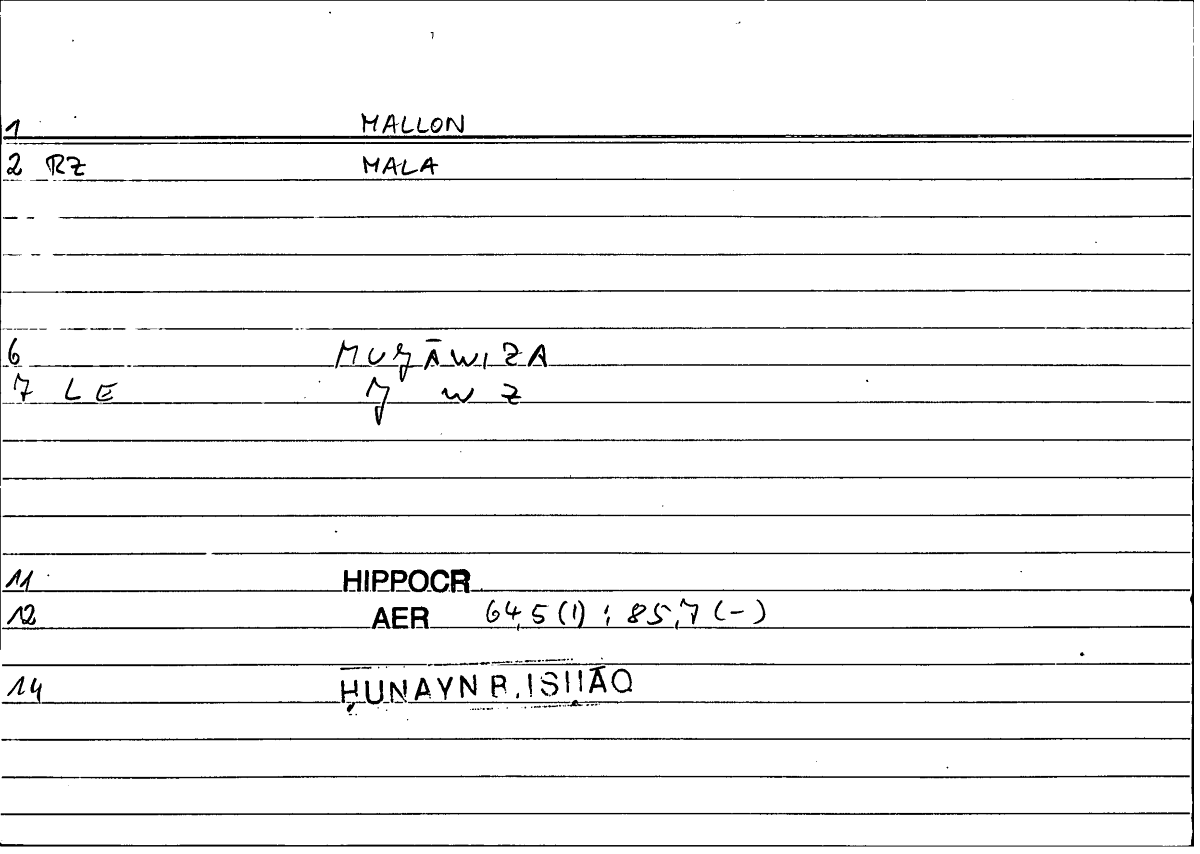 1 MALLON
2 RZ MALA
6 MUǦĀWIZA
7 LE Ǧ W Z
11 HIPPOCR
12 AER 64,5 (1) ; 85,7 (-)
14 ḤUNAYN B. ISḤĀQ